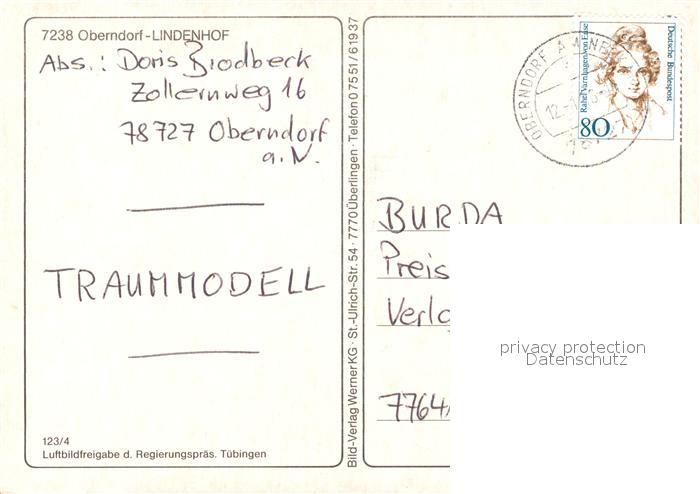 7238 Oberndorf-LINDENHOF
Abs.: Doris Brodbeck
Zollernweg 16
78727 Oberndorf
a.N.
TRAUMMODELL
123/4
Luftbildfreigabe d. Regierungspräs. Tübingen
Bild-Verlag Werner KG · St.-Ulrich-Str. 54 · 7770 Überlingen · Telefon 07551/61937
OBERNDORF AM NECKAR
12
Rahel Varnhagen von Ense
Deutsche Bundespost
80
BURDA
Preis
Verlag
7764
privacy protection
Datenschutz